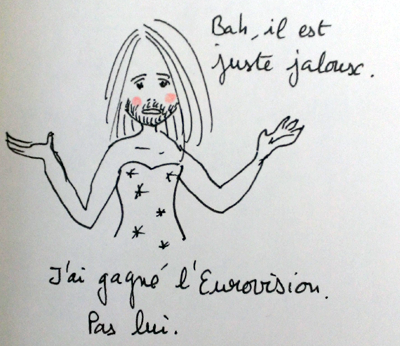 Bah, il est
juste jaloux.
J'ai gagné l'Eurovision.
Pas lui.